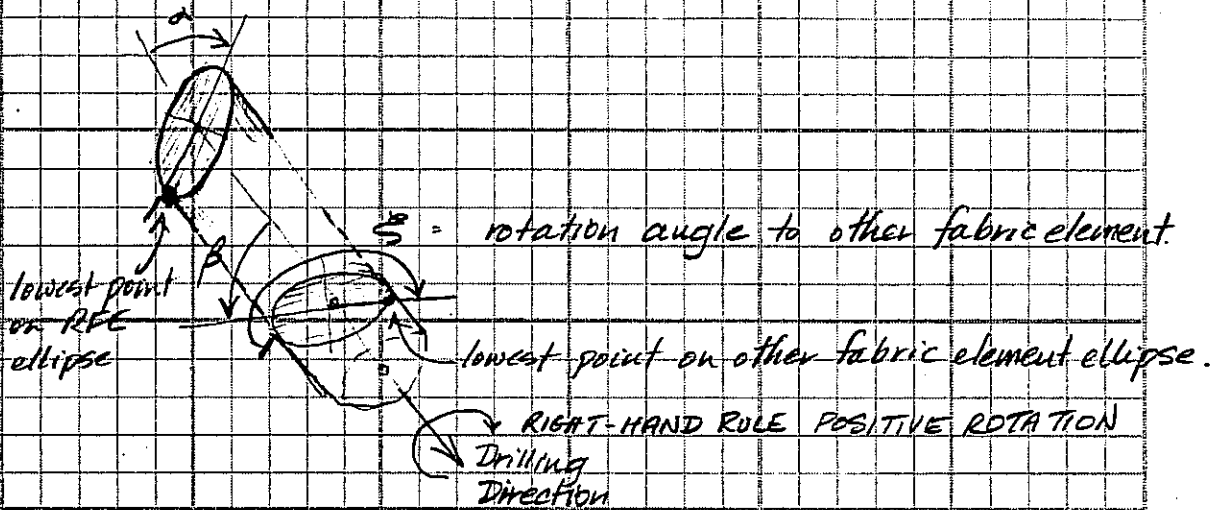 α
ξ = rotation angle to other fabric element.
β
lowest point
on RFE
ellipse
lowest point on other fabric element ellipse.
RIGHT-HAND RULE POSITIVE ROTATION
Drilling
Direction